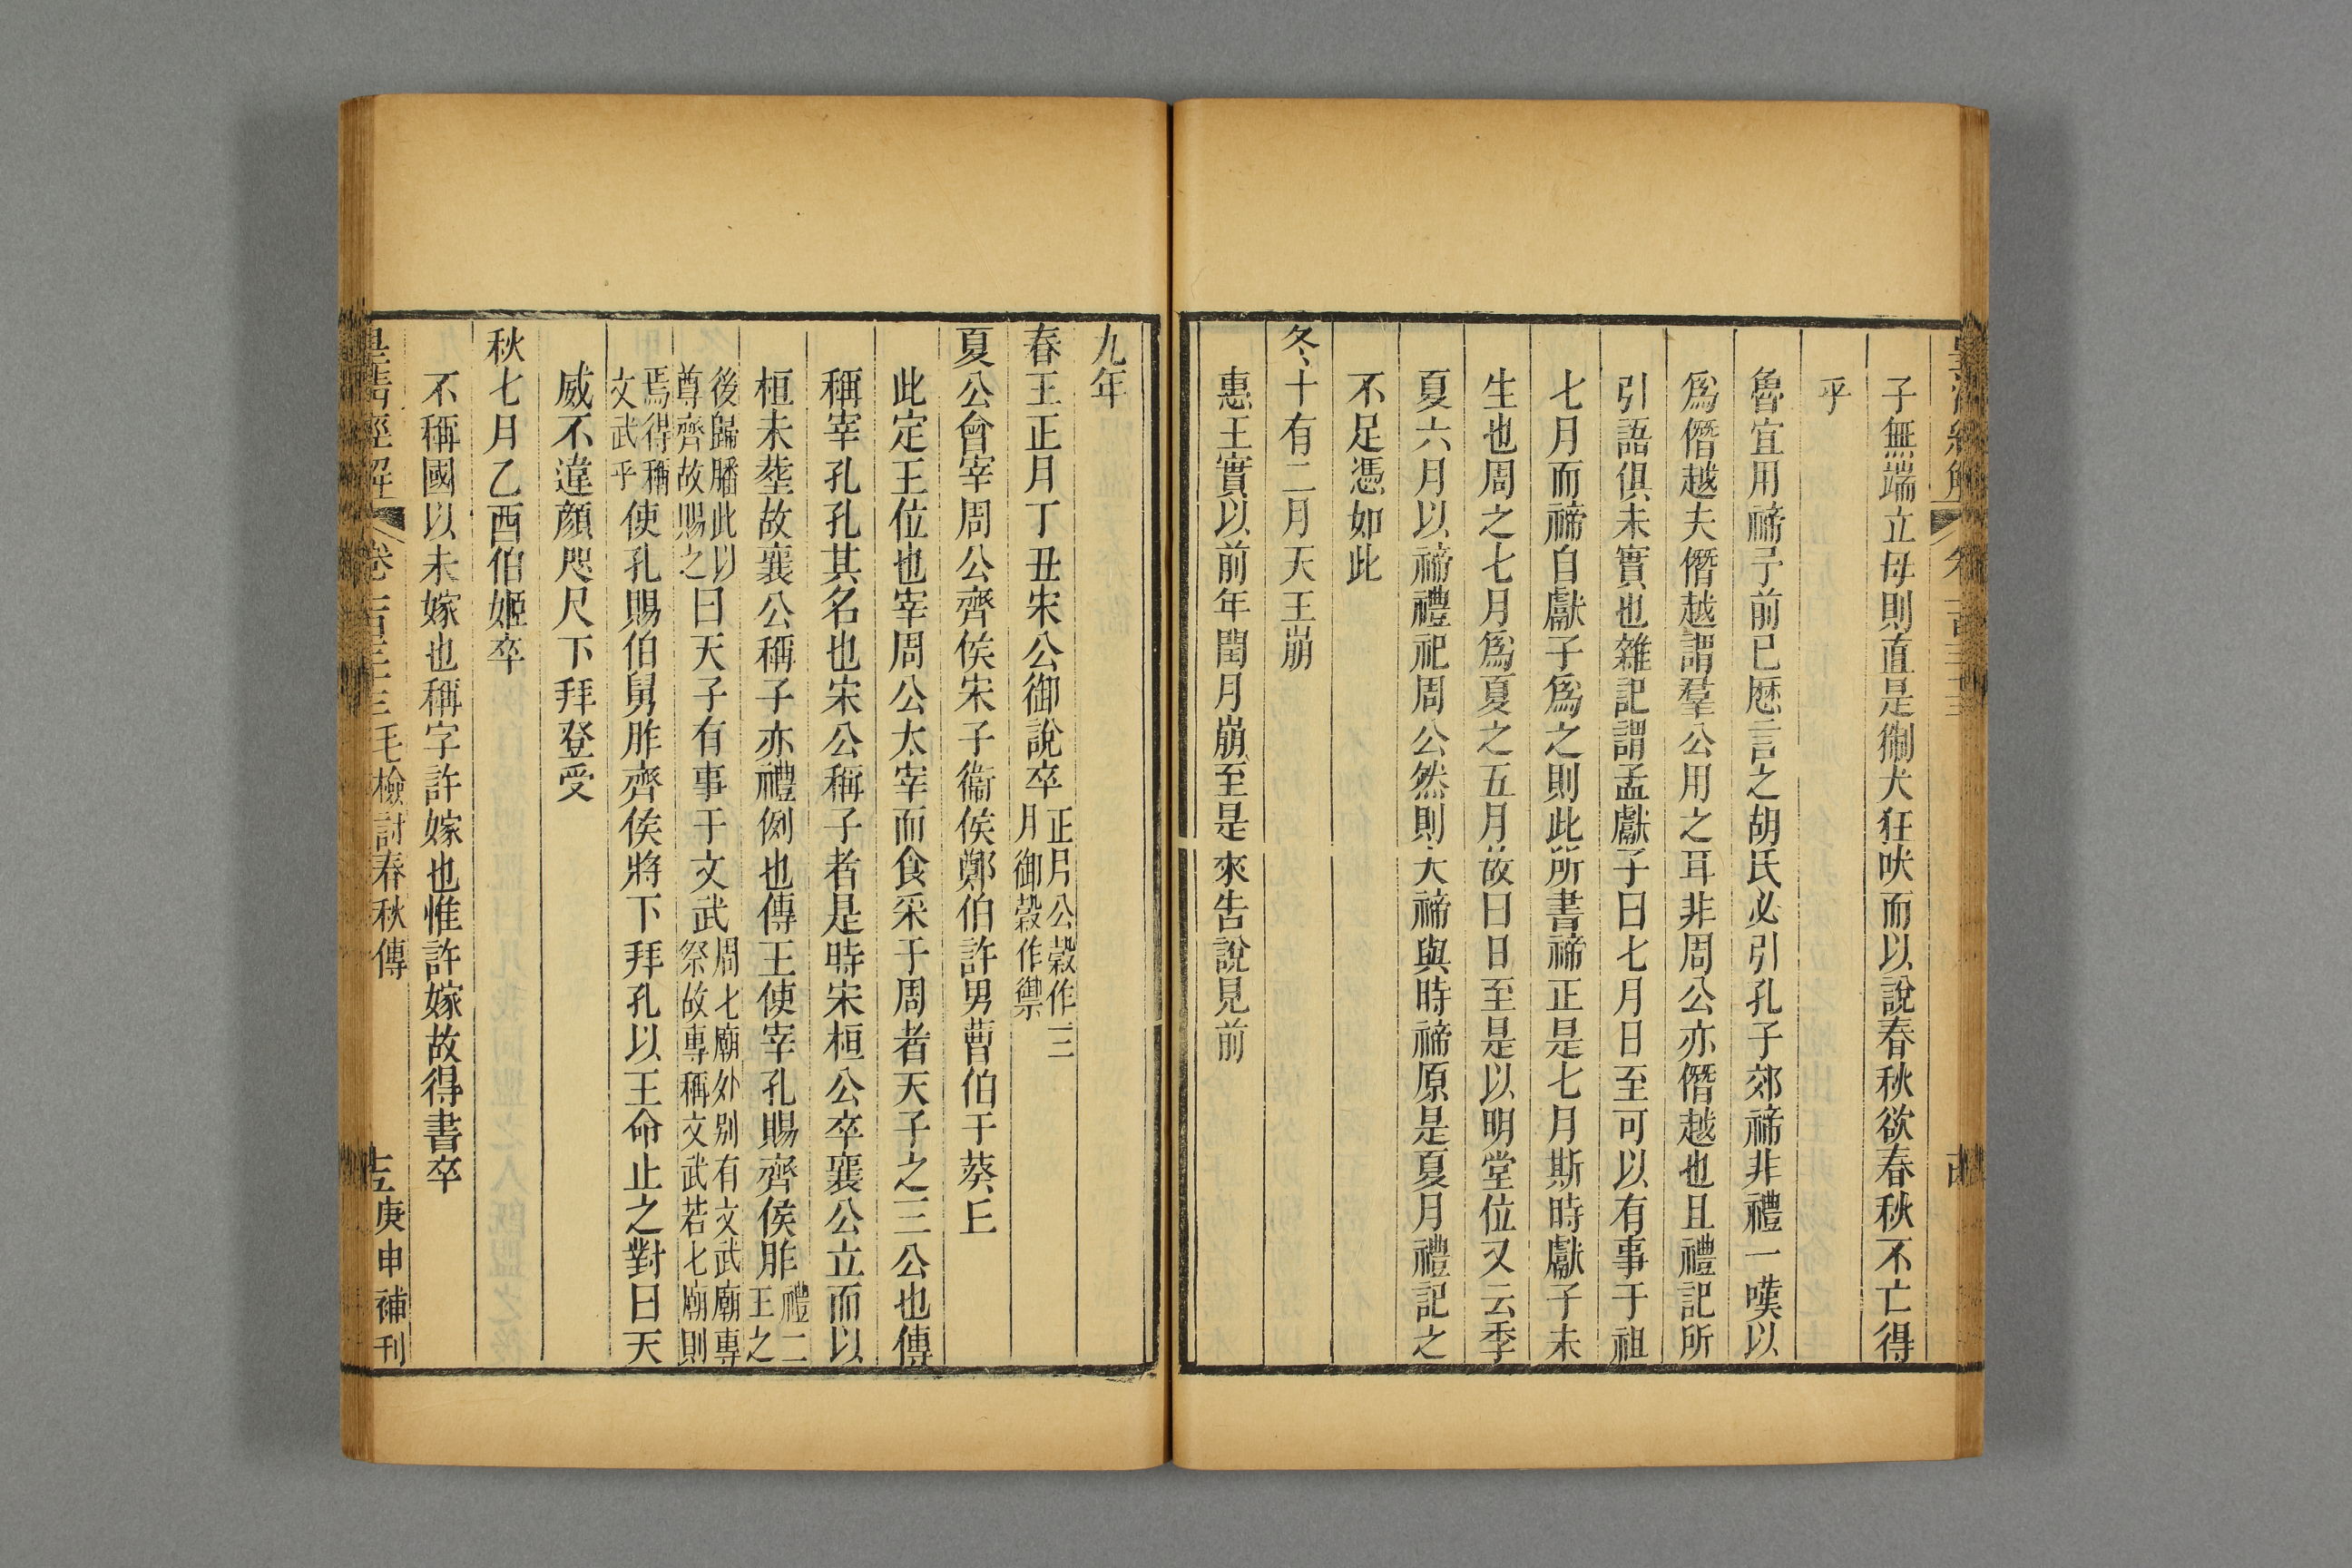 子無端立母則直是猘犬狂吠而以說春秋欲春秋不亡得
乎
魯宜用禘予前已厯言之胡氏必引孔子郊禘非禮一嘆以
爲僭越夫僭越謂羣公用之耳非周公亦僭越也且禮記所
引語俱未實也雜記謂孟獻子曰七月日至可以有事于祖
七月而禘自獻子爲之則此所書禘正是七月斯時獻子未
生也周之七月爲夏之五月故曰日至是以明堂位又云季
夏六月以禘禮祀周公然則大禘與時禘原是夏月禮記之
不足憑如此
冬十有二月天王崩
惠王實以前年閏月崩至是來告說見前
九年
春王正月丁丑宋公御說卒正月公穀作三月御穀作禦
夏公會宰周公齊侯宋子衞侯鄭伯許男曹伯于葵丘
此定王位也宰周公太宰而食采于周者天子之三公也傳
稱宰孔孔其名也宋公稱子者是時宋桓公卒襄公立而以
桓未塟故襄公稱子亦禮例也傳王使宰孔賜齊侯胙禮二王之
後歸膰此以尊齊故賜之曰天子有事于文武周七廟外别有文武廟專祭故專稱文武若七廟則
焉得稱文武乎使孔賜伯舅胙齊侯將下拜孔以王命止之對曰天
威不違顔咫尺下拜登受
秋七月乙酉伯姬卒
不稱國以未嫁也稱字許嫁也惟許嫁故得書卒
皇清經解 卷一百二十三毛檢討春秋傳 庚申補刊